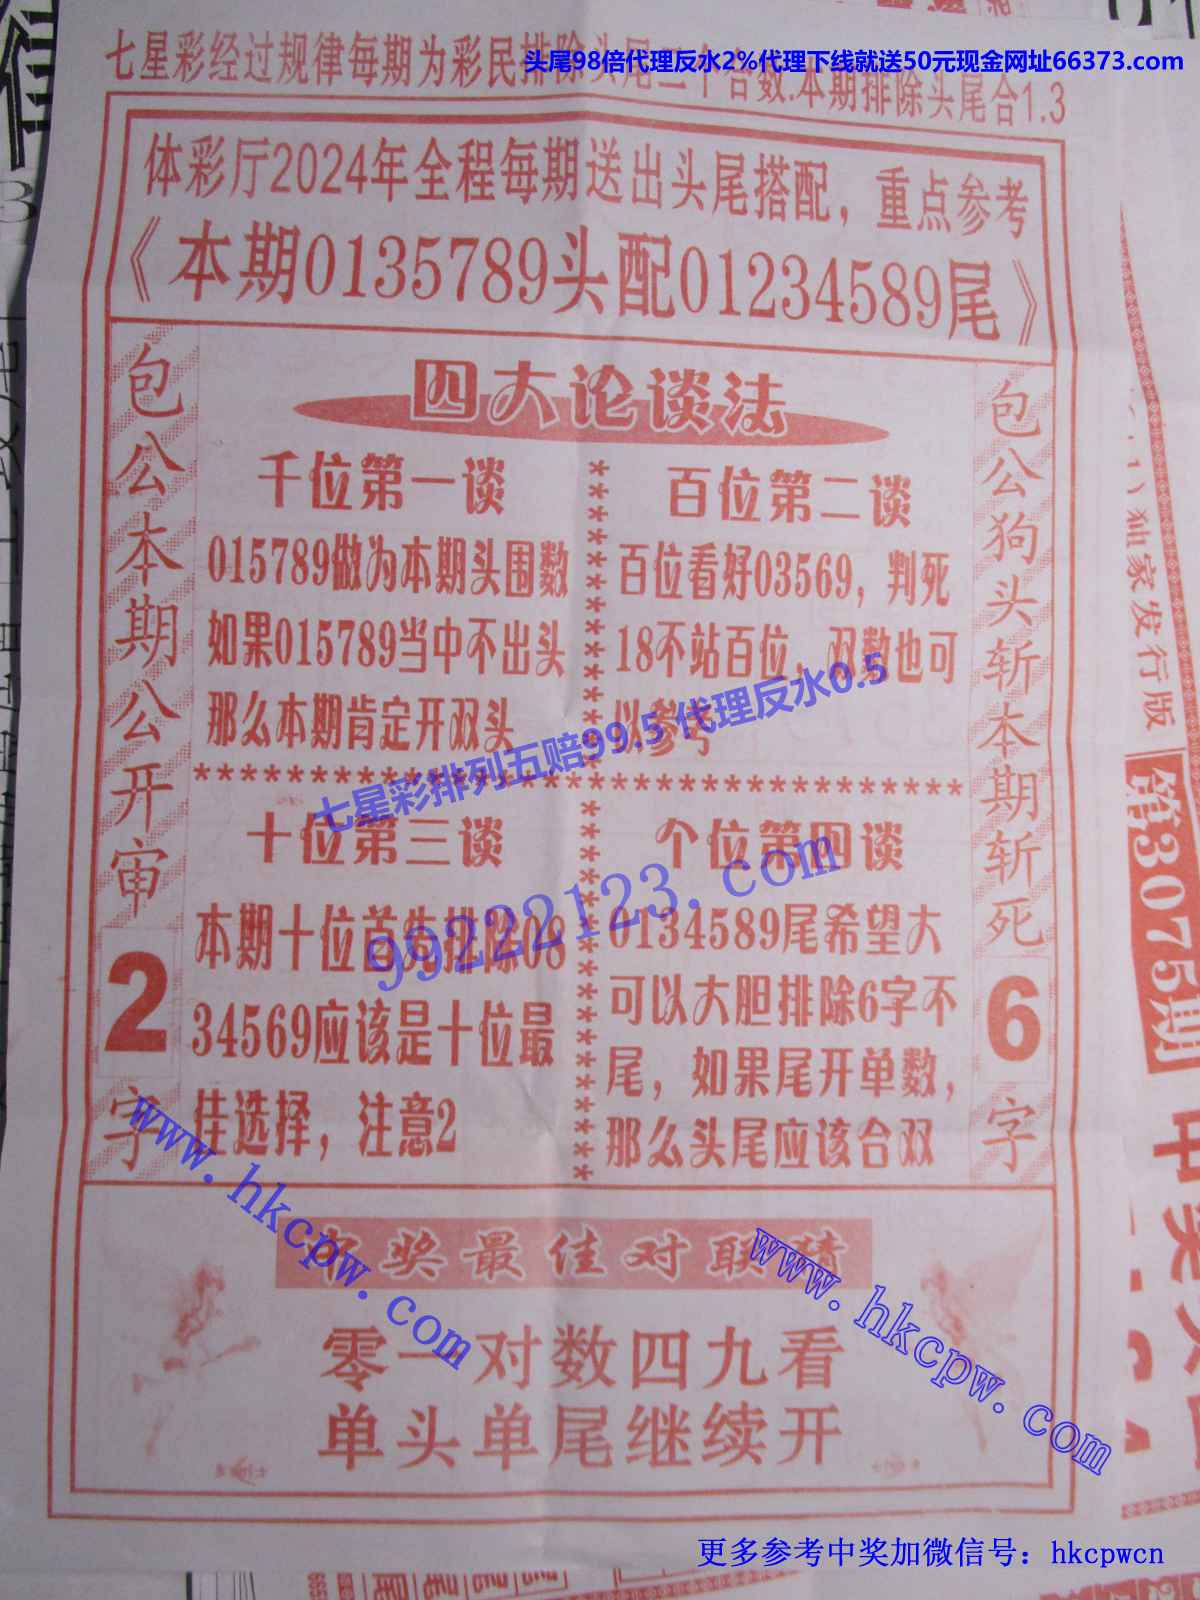 头尾98倍代理反水2%代理下线就送50元现金网址66373.com
七星彩经过规律每期为彩民排除头尾二个合数.本期排除头尾合1.3
体彩厅2024年全程每期送出头尾搭配，重点参考
《本期0135789头配01234589尾》
包公本期公开审2字
四大论谈法
千位第一谈
015789做为本期头围数
如果015789当中不出头
那么本期肯定开双头
百位第二谈
百位看好03569，判死
18不站百位，双数也可
以参考
七星彩排列五赔99.5 代理反水0.5
99222123.com
十位第三谈
本期十位首先排除08
34569应该是十位最
佳选择，注意2
个位第四谈
0134589尾希望大
可以大胆排除6字不
尾，如果尾开单数，
那么头尾应该合双
包公狗头斩本期斩死6字
www.hkcpw.com
www.hkcpw.com
奖最佳对联
零一对数四九看
单头单尾继续开
独家发行版
第3075期
更多参考中奖加微信号：hkcpwcn